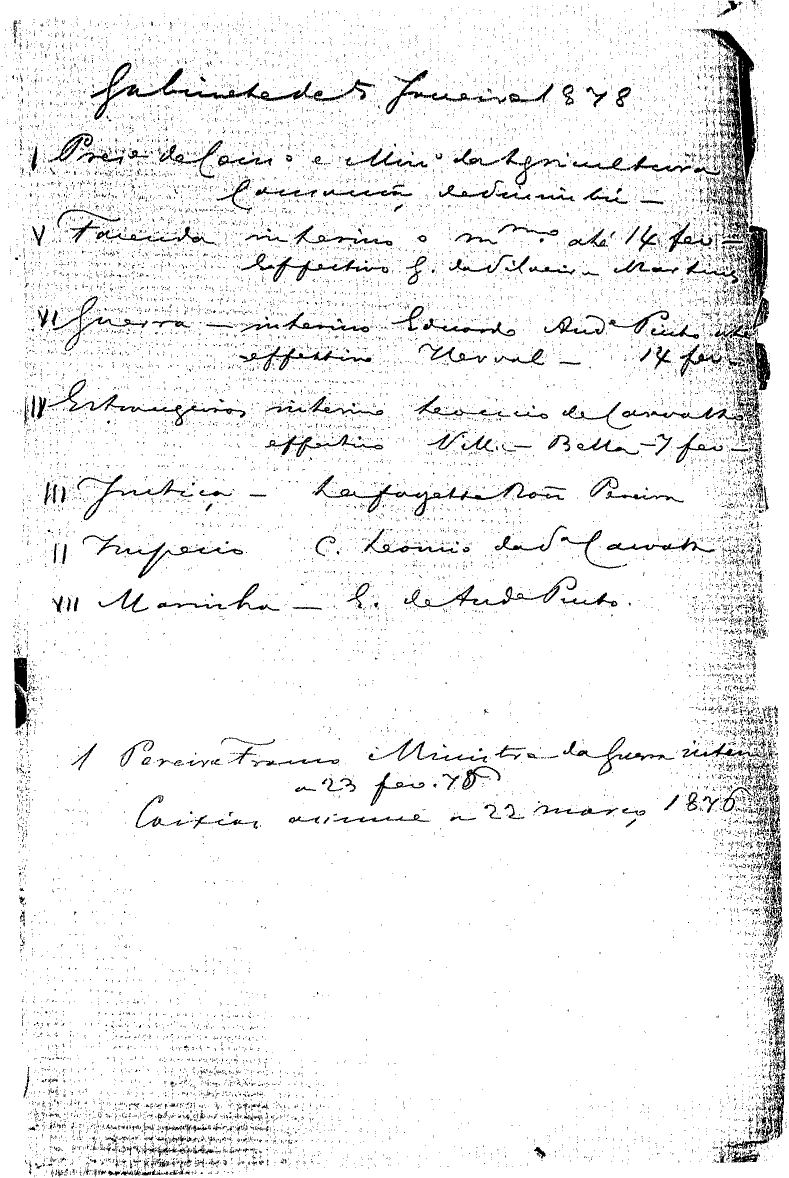 Gabinete de 5 Janeiro 1878
I Preze do Con.o e Min.o da Agricultura
Cansanção de Sinimbú —
V Fazenda interino o mmo. até 14 fev —
Effectivo G. da Silveira Martins
VI Guerra — interino Eduardo And.e Pinto até
effectivo Herval — 14 fev —
IV Estrangeiros interino Leoncio de Carvalho
effectivo Villa Bella — 7 fev —
III Justiça — Lafayette Roiz Pereira
II Imperio C. Leoncio da S.a Carvalho
VII Marinha — E. de And.e Pinto.
1 Pereira Franco Ministro da Guerra interi
a 23 fev. 78
Caixias assume a 22 março 1876